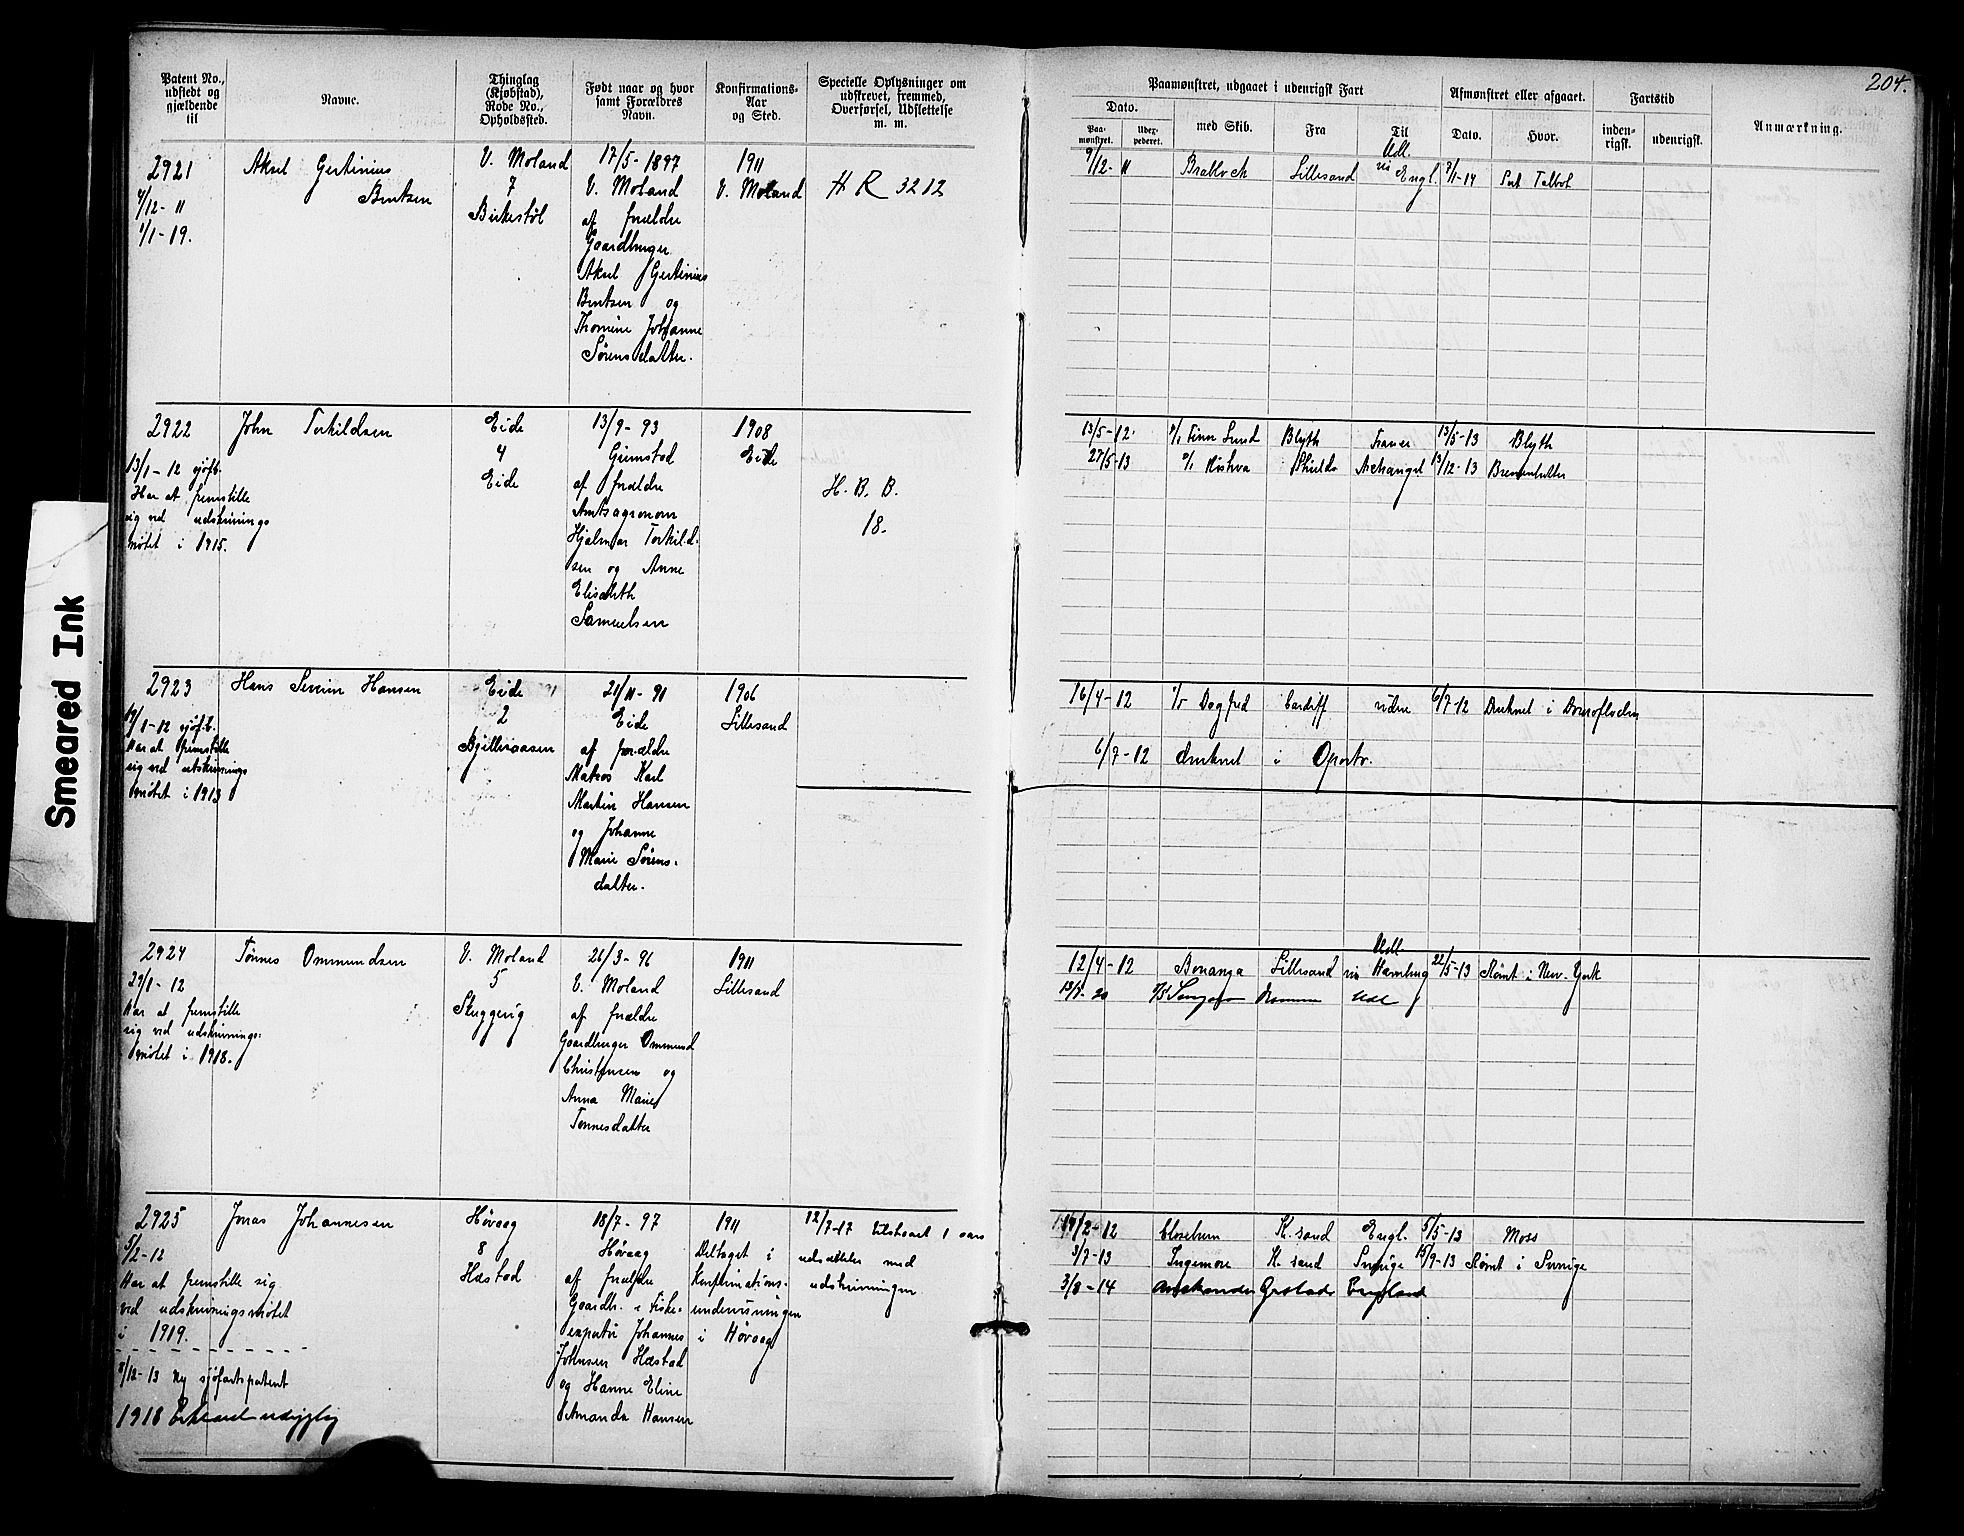 204.
Patent No., udstedt og gjældende til
Navne.
Thinglag (Kjøbstad), Rode No., Opholdssted.
Født naar og hvor samt Forældres Navn.
Konfirmations-Aar og Sted.
Specielle Oplysninger om udskrevet, fremmed, Overførsel, Udslettelse m. m.
Paamønstret, udgaaet i udenrigsk Fart
Dato.
Paamønstret.
Udexpederet.
med Skib.
Fra
Til
Afmønstret eller afgaaet.
Dato.
Hvor.
Fartstid
indenrigsk.
udenrigsk.
Anmærkning.
Smeared Ink
2921
4/12-11
1/1-19.
Aksel Gertinius
Bentsen
V. Moland
7
Birkestøl
17/5-1897
V. Moland
af forældre
Gaardbruger
Aksel Gertinius
Bentsen og
Thomine Johanne
Sørensdatter.
1911
V. Moland
H R 3212
9/12-11
Lillesand
Udl.
via Engl.
2/1-14
Port Talbot
2922
13/1-12 sjøft.
Har at fremstille
sig ved udskrivnings
møtet i 1915.
John Torkildsen
Eide
4
Eide
13/9-93
Grimstad
af forældre
Amtsagronom
Hjalmar Torkild-
sen og Anne
Elisabeth
Samuelsen
1908
Eide
H. B. B.
18.
13/5-12. Finn Lund Blyth 13/5-13 Blyth
27/5-13 Shields Archangel 13/12-13
2923
Har at fremstille
sig ved utskrivnings
møtet i 1913
Hans Severin Hansen
Eide
2
21/11-91
Eide
af forældre
Matros Karl
Martin Hansen
og Johanne
Marie Sørens-
datter.
1906
Lillesand
16/4-12 Dagfred Cardiff videre 6/7-12 Druknet i
6/7-12 druknet i Oporto.
2924
29/1-12
Har at fremstille
sig ved udskrivnings-
møtet i 1918.
Tønnes Ommundsen
V. Moland
5
26/3-96
V. Moland
af forældre
Gaardbruger Ommund
Christensen og
Anna Marie
Tønnesdatter
1911
Lillesand
Udl.
12/4-12 Bonanza Lillesand via Hamburg 22/5-13 Rømt i New-York
2925
5/2-12
Har at fremstille sig
ved udskrivningsmøtet
i 1919.
8/12-13 Ny sjøfartspatent
1918
Jonas Johannesen
Høvaag
8
Hæstad
18/7-97
Høvaag
af forældre
Gaardb. & Fiske-
exportør Johannes
Johnsen Hæstad
og Hanne Eline
Amanda Hansen
1911
Deltaget i
Konfirmations-
undervisningen
i Høvaag
12/2-17 tilstaaet 1 aars
udsættelse med
udskrivningen
19/2-12 K.sand Engl. 5/5-13 Moss
3/7-13 Ingemore K.sand Sverige 15/9-13 Rømt i Sverige
3/8-14 England